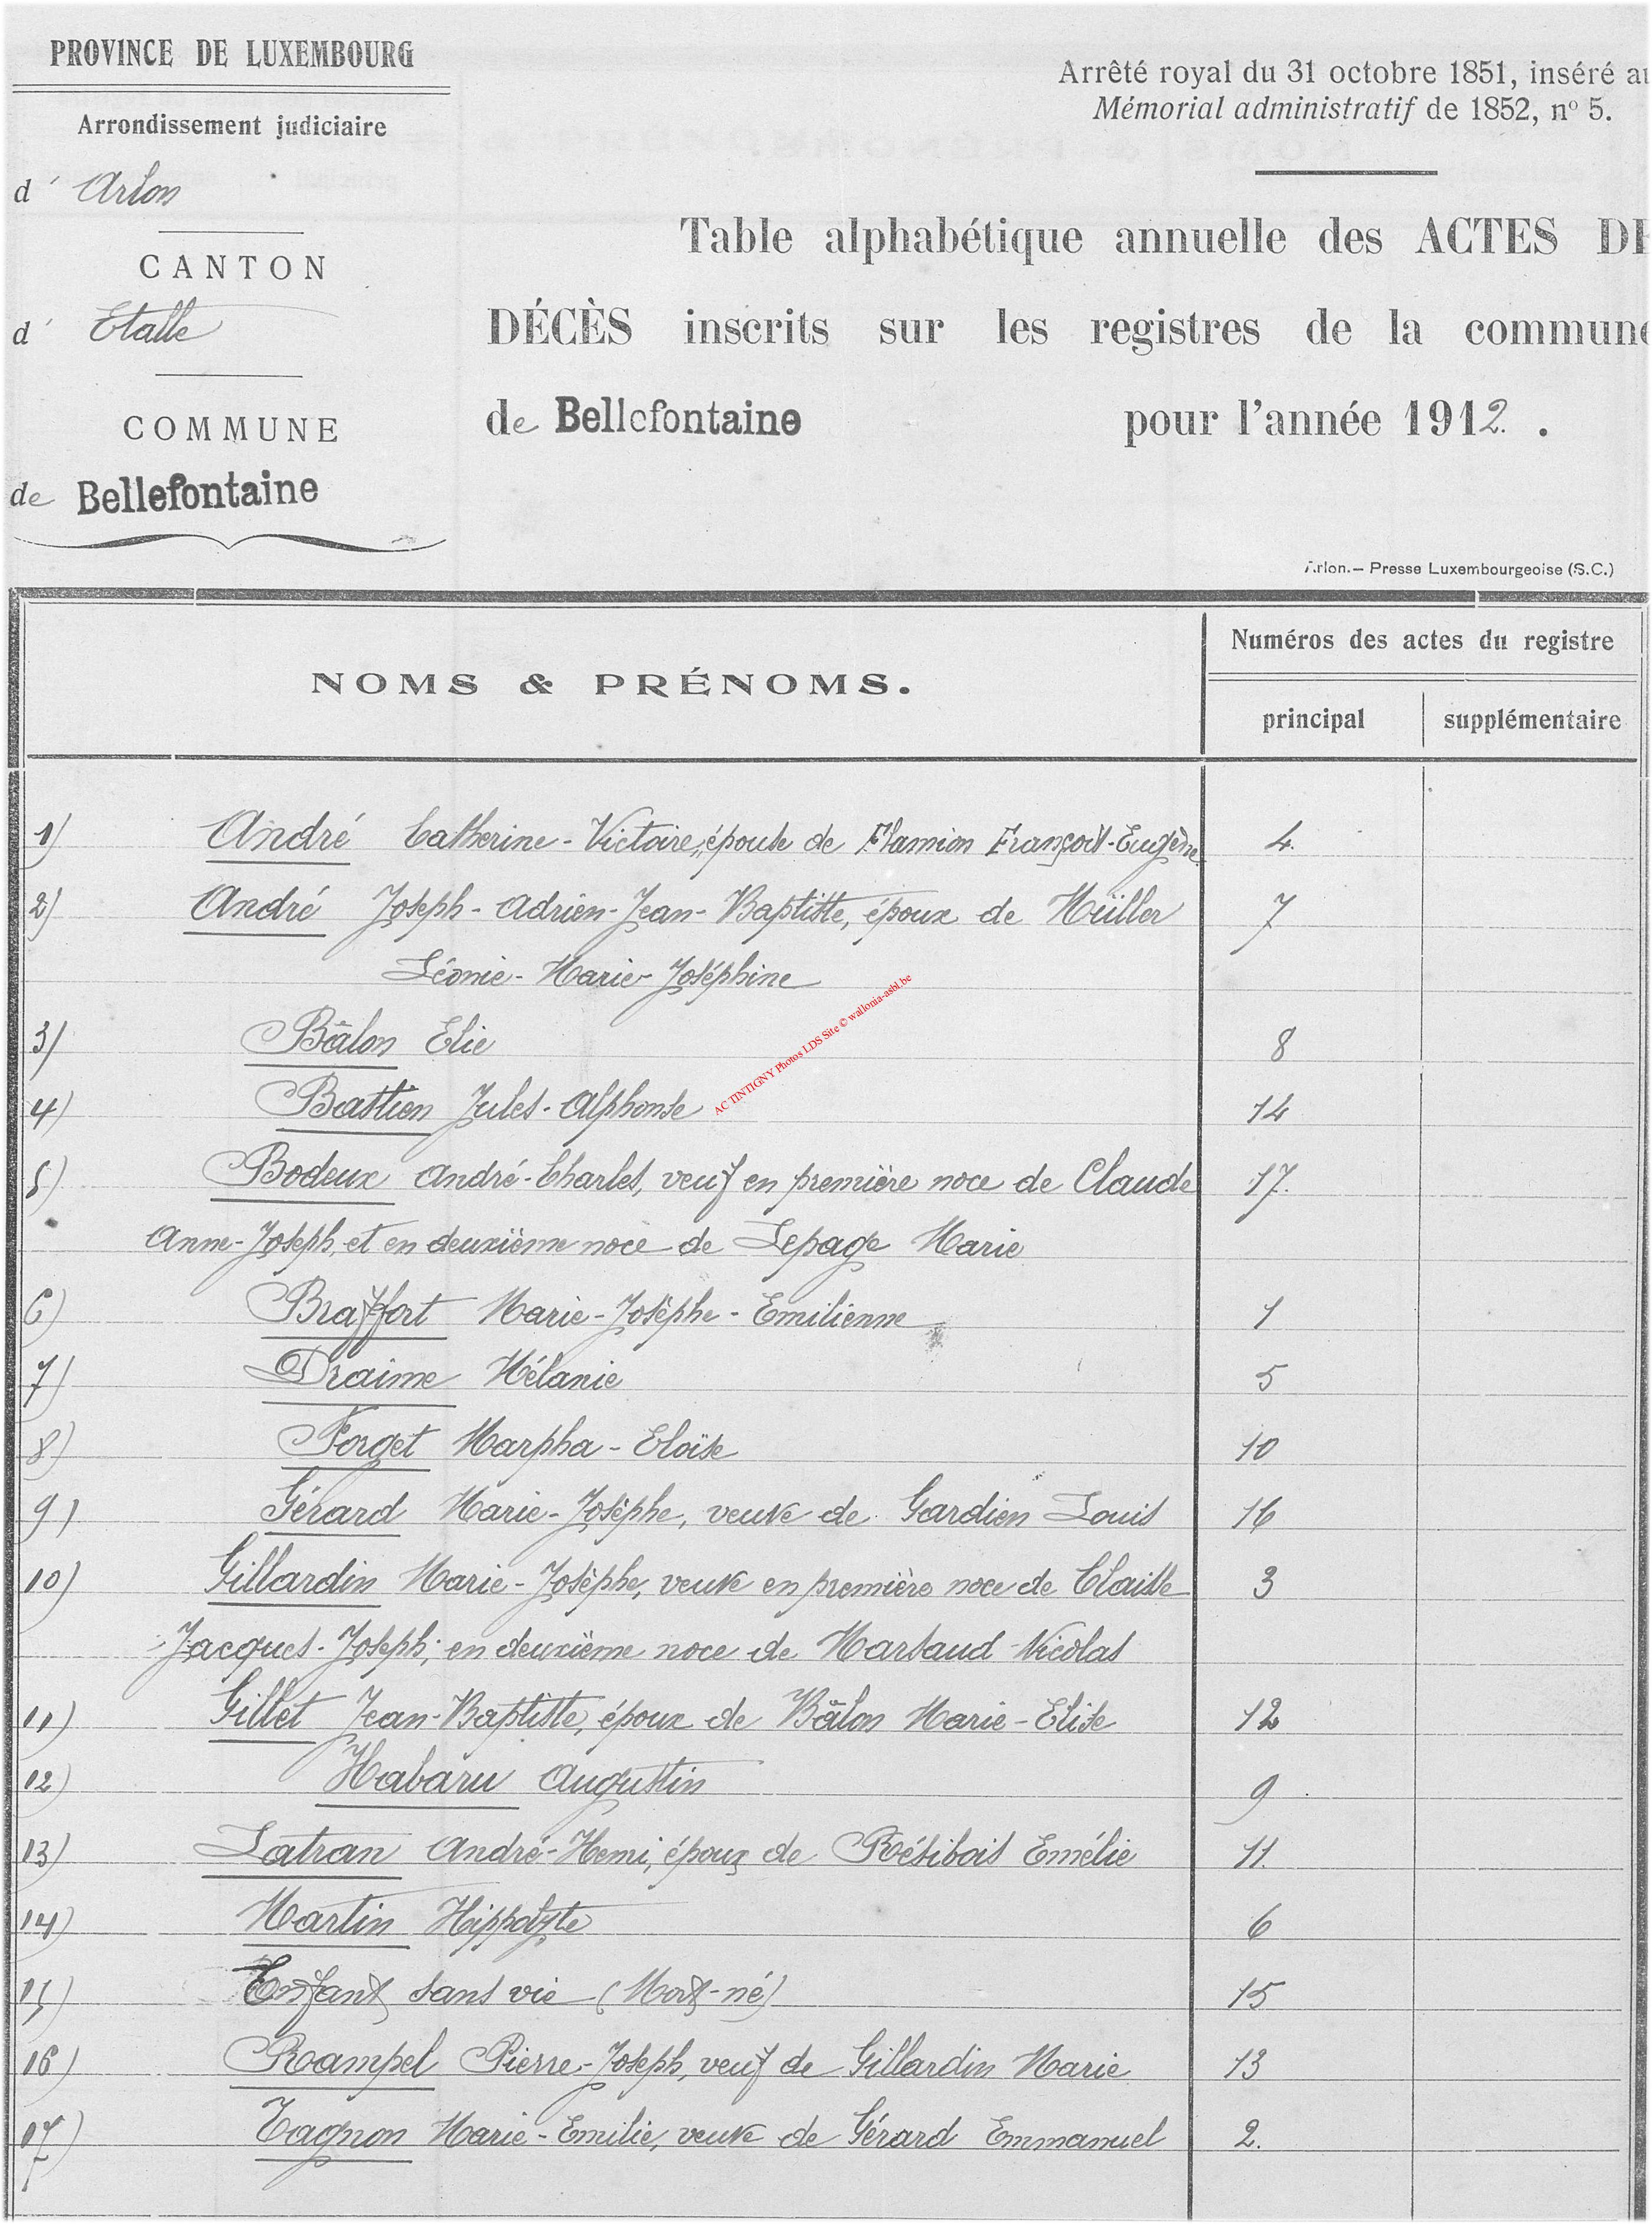 PROVINCE DE LUXEMBOURG
Arrondissement judiciaire
d' Arlon
CANTON
d' Etalle
COMMUNE
de Bellefontaine
Arrêté royal du 31 octobre 1851, inséré au
Mémorial administratif de 1852, n° 5.
Table alphabétique annuelle des ACTES DE
DÉCÈS inscrits sur les registres de la commune
de Bellefontaine pour l'année 1912.
Arlon. — Presse Luxembourgeoise (S.C.)
NOMS & PRÉNOMS.
Numéros des actes du registre
principal supplémentaire
1) André Catherine-Victoire, épouse de Flamion François-Eugène 4.
2) André Joseph-Adrien-Jean-Baptiste, époux de Müller 7
Léonie-Marie-Joséphine
3) Bâlon Elie 8
4) Bastien Jules-Alphonse 14
5) Bodeux André-Charles, veuf en première noce de Claude 17.
Anne-Joseph, et en deuxième noce de Lepage Marie
6) Braffort Marie-Josèphe-Emilienne 1
7) Draime Mélanie 5
8) Forget Marpha-Eloïse 10
9) Gérard Marie-Josèphe, veuve de Gardien Louis 16
10) Gillardin Marie-Josèphe, veuve en première noce de Claisse 3
Jacques-Joseph; en deuxième noce de Marsaud Nicolas
11) Gillet Jean-Baptiste, époux de Bâlon Marie-Elise 12
12) Habaru Augustin 9
13) Latran André-Henri, époux de Résibois Emélie 11.
14) Martin Hippolyte 6
15) Enfant sans vie (Mort-né) 15
16) Rampel Pierre-Joseph, veuf de Gillardin Marie 13
17) Tagnon Marie-Emilie, veuve de Gérard Emmanuel 2.
AC TINTIGNY Photos LDS Site © wallonia-asbl.be